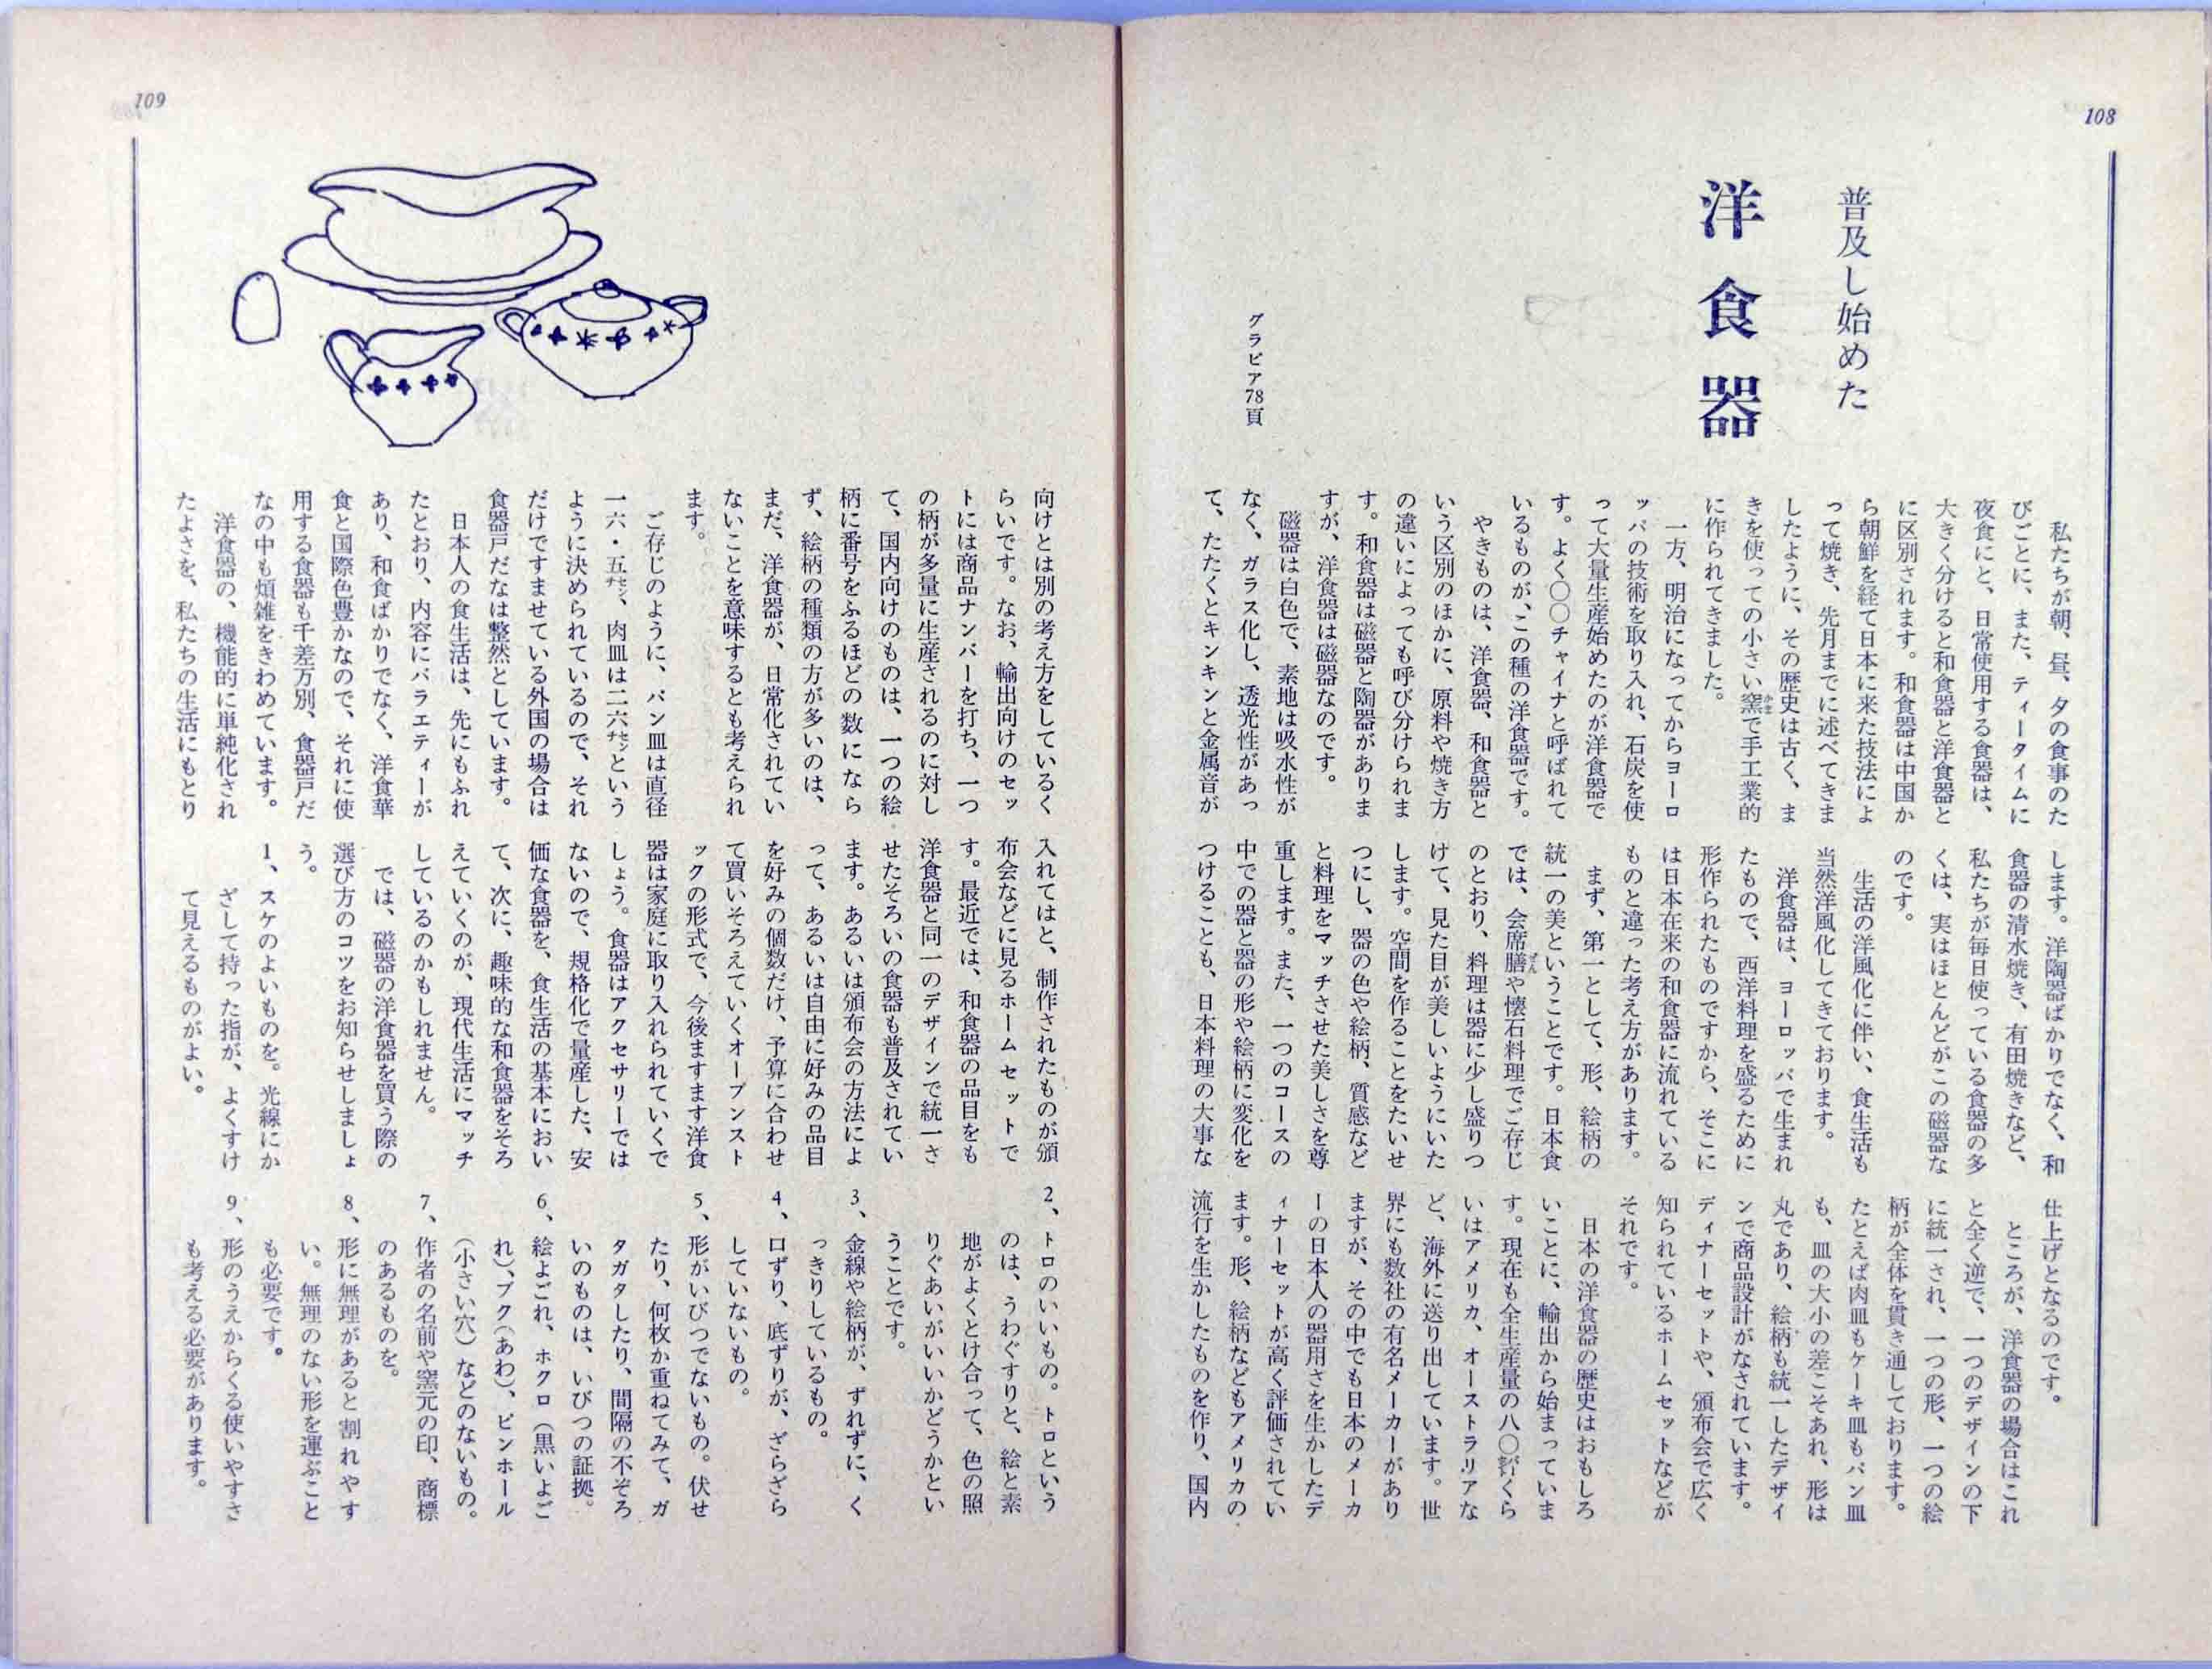 108
普及し始めた
洋食器
グラビア78頁
私たちが朝、昼、夕の食事のた
びごとに、また、ティータイムに
夜食にと、日常使用する食器は、
大きく分けると和食器と洋食器と
に区別されます。和食器は中国か
ら朝鮮を経て日本に来た技法によ
って焼き、先月までに述べてきま
したように、その歴史は古く、ま
きを使っての小さい窯かまで手工業的
に作られてきました。
一方、明治になってからヨーロ
ッパの技術を取り入れ、石炭を使
って大量生産始めたのが洋食器で
す。よく〇〇チャイナと呼ばれて
いるものが、この種の洋食器です。
やきものは、洋食器、和食器と
いう区別のほかに、原料や焼き方
の違いによっても呼び分けられま
す。和食器は磁器と陶器がありま
すが、洋食器は磁器なのです。
磁器は白色で、素地は吸水性が
なく、ガラス化し、透光性があっ
て、たたくとキンキンと金属音が
します。洋陶器ばかりでなく、和
食器の清水焼き、有田焼きなど、
私たちが毎日使っている食器の多
くは、実はほとんどがこの磁器な
のです。
生活の洋風化に伴い、食生活も
当然洋風化してきております。
洋食器は、ヨーロッパで生まれ
たもので、西洋料理を盛るために
形作られたものですから、そこに
は日本在来の和食器に流れている
ものと違った考え方があります。
まず、第一として、形、絵柄の
統一の美ということです。日本食
では、会席膳ぜんや懐石料理でご存じ
のとおり、料理は器に少し盛りつ
けて、見た目が美しいようにいた
します。空間を作ることをたいせ
つにし、器の色や絵柄、質感など
と料理をマッチさせた美しさを尊
重します。また、一つのコースの
中での器と器の形や絵柄に変化を
つけることも、日本料理の大事な
仕上げとなるのです。
ところが、洋食器の場合はこれ
と全く逆で、一つのデザインの下
に統一され、一つの形、一つの絵
柄が全体を貫き通しております。
たとえば肉皿もケーキ皿もパン皿
も、皿の大小の差こそあれ、形は
丸であり、絵柄も統一したデザイ
ンで商品設計がなされています。
ディナーセットや、頒布会で広く
知られているホームセットなどが
それです。
日本の洋食器の歴史はおもしろ
いことに、輸出から始まっていま
す。現在も全生産量の八〇㌫くら
いはアメリカ、オーストラリアな
ど、海外に送り出しています。世
界にも数社の有名メーカーがあり
ますが、その中でも日本のメーカ
ーの日本人の器用さを生かしたデ
ィナーセットが高く評価されてい
ます。形、絵柄などもアメリカの
流行を生かしたものを作り、国内
109
向けとは別の考え方をしているく
らいです。なお、輸出向けのセッ
トには商品ナンバーを打ち、一つ
の柄が多量に生産されるのに対し
て、国内向けのものは、一つの絵
柄に番号をふるほどの数になら
ず、絵柄の種類の方が多いのは、
まだ、洋食器が、日常化されてい
ないことを意味するとも考えられ
ます。
ご存じのように、パン皿は直径
一六・五㌢、肉皿は二六㌢という
ように決められているので、それ
だけですませている外国の場合は
食器戸だなは整然としています。
日本人の食生活は、先にもふれ
たとおり、内容にバラエティーが
あり、和食ばかりでなく、洋食華
食と国際色豊かなので、それに使
用する食器も千差万別、食器戸だ
なの中も煩雑をきわめています。
洋食器の、機能的に単純化され
たよさを、私たちの生活にもとり
入れてはと、制作されたものが頒
布会などに見るホームセットで
す。最近では、和食器の品目をも
洋食器と同一のデザインで統一さ
せたそろいの食器も普及されてい
ます。あるいは頒布会の方法によ
って、あるいは自由に好みの品目
を好みの個数だけ、予算に合わせ
て買いそろえていくオープンスト
ックの形式で、今後ますます洋食
器は家庭に取り入れられていくで
しょう。食器はアクセサリーでは
ないので、規格化で量産した、安
価な食器を、食生活の基本におい
て、次に、趣味的な和食器をそろ
えていくのが、現代生活にマッチ
しているのかもしれません。
では、磁器の洋食器を買う際の
選び方のコツをお知らせしましょ
う。
1、スケのよいものを。光線にか
ざして持った指が、よくすけ
て見えるものがよい。
2、トロのいいもの。トロという
のは、うわぐすりと、絵と素
地がよくとけ合って、色の照
りぐあいがいいかどうかとい
うことです。
3、金線や絵柄が、ずれずに、く
っきりしているもの。
4、口ずり、底ずりが、ざらざら
していないもの。
5、形がいびつでないもの。伏せ
たり、何枚か重ねてみて、ガ
タガタしたり、間隔の不ぞろ
いのものは、いびつの証拠。
6、絵よごれ、ホクロ（黒いよご
れ）、ブク（あわ）、ピンホール
（小さい穴）などのないもの。
7、作者の名前や窯元の印、商標
のあるものを。
8、形に無理があると割れやす
い。無理のない形を運ぶこと
も必要です。
9、形のうえからくる使いやすさ
も考える必要があります。